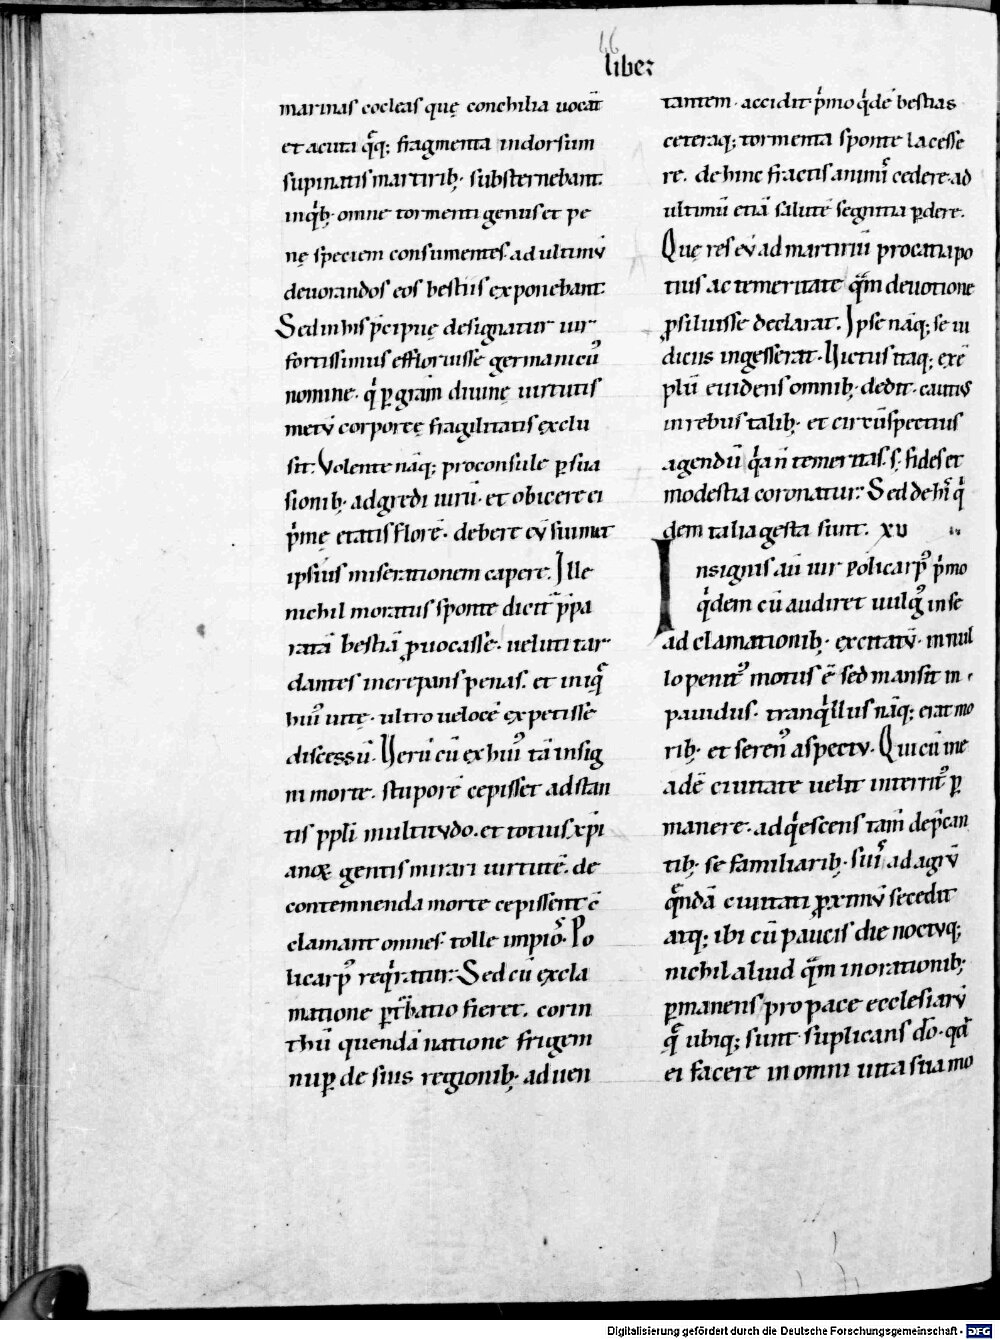 46
liber
marinas cocleas quę conchilia uocāt
et acuta q̄q; fragmenta indorsum
supinatis martirib; substernebant.
inqͥb; omne tormenti genus et pe
nę speciem consumentes. ad ultimū
deuorandos eos bestiis exponebant.
Sed in his p̄cipuę designatur uir
fortissimus effloruisse germanicuͣ
nomine. qͥ ꝑ gram̄ diuinę uirtutis
metū corporeę fragilitatis exclu
sit. Volente nāq; proconsule ꝑsua
sionib; adgredi uirū. et obicere ei
pͥmę etatis florē. debere eū sui met
ipsius miserationem capere. Ille
nichil moratus sponte dicit̄ p̄pa
ratā bestiā ꝓuocasse. ueluti tar
dantes increpans penas. et iniqͣ
huiꝰ uitę. ultro uelocē expetisse
discessū. Verū cū ex huiꝰ tā insig
ni morte. stuporē cepisset adstan
tis ppli multitudo. et totius xp̄i
anoꝝ gentis mirari uirtutē. de
contemnenda morte cepissent c̄
clamant omnes. tolle impioͣ. Po
licarpꝰ reqͥratur. Sed cū excla
matione ꝑt̄batio fieret. corin
thū quendā natione frigem
nuꝑ de suis regionib; aduen
tantem. accidit pͥmo qͥdē bestias
ceteraq; tormenta sponte lacesse
re. dehinc fractis animī cedere. ad
ultimū etiā salutē segnitia ꝑdere.
Quę res eū ad martiriū procatia po
tius ac temeritate qͣm deuotione
ꝓsiluisse declarat. Ipse nāq; se iu
diciis ingesserat. Victus itaq; exē
plū euidens omnib; dedit. cautiꝰ
in rebus talib; et circūspectius
agendū qͥa n̄ temeritas. s; fides et
modestia coronatur. Sed de hī qͥ
dem talia gesta sunt. XV
Insignis aū uir policarpꝰ pͥmo
qͥdem cū audiret uulgͥ in se
ad clamationib; excitatū. in nul
lo penitꝰ motus ē sed mansit in
pauidus. tranqͥllus nāq; erat mo
rib; et serenꝰ aspectu. Qui cū me
adē ciuitate uelit interritꝰ ꝑ
manere. adqͥescens tam̄ dep̄can
tib; se familiarib; suī ad agrū
qͣndā ciuitati ꝓximū secedit
atq; ibi cū paucis die noctuq;
nichil aliud qͣm in orationib;
ꝑmanens pro pace ecclesiarū
qͣ ubiq; sunt suplicans dō. qd̄
ei facere in omni uita sua mo
Digitalisierung gefördert durch die Deutsche Forschungsgemeinschaft - DFG